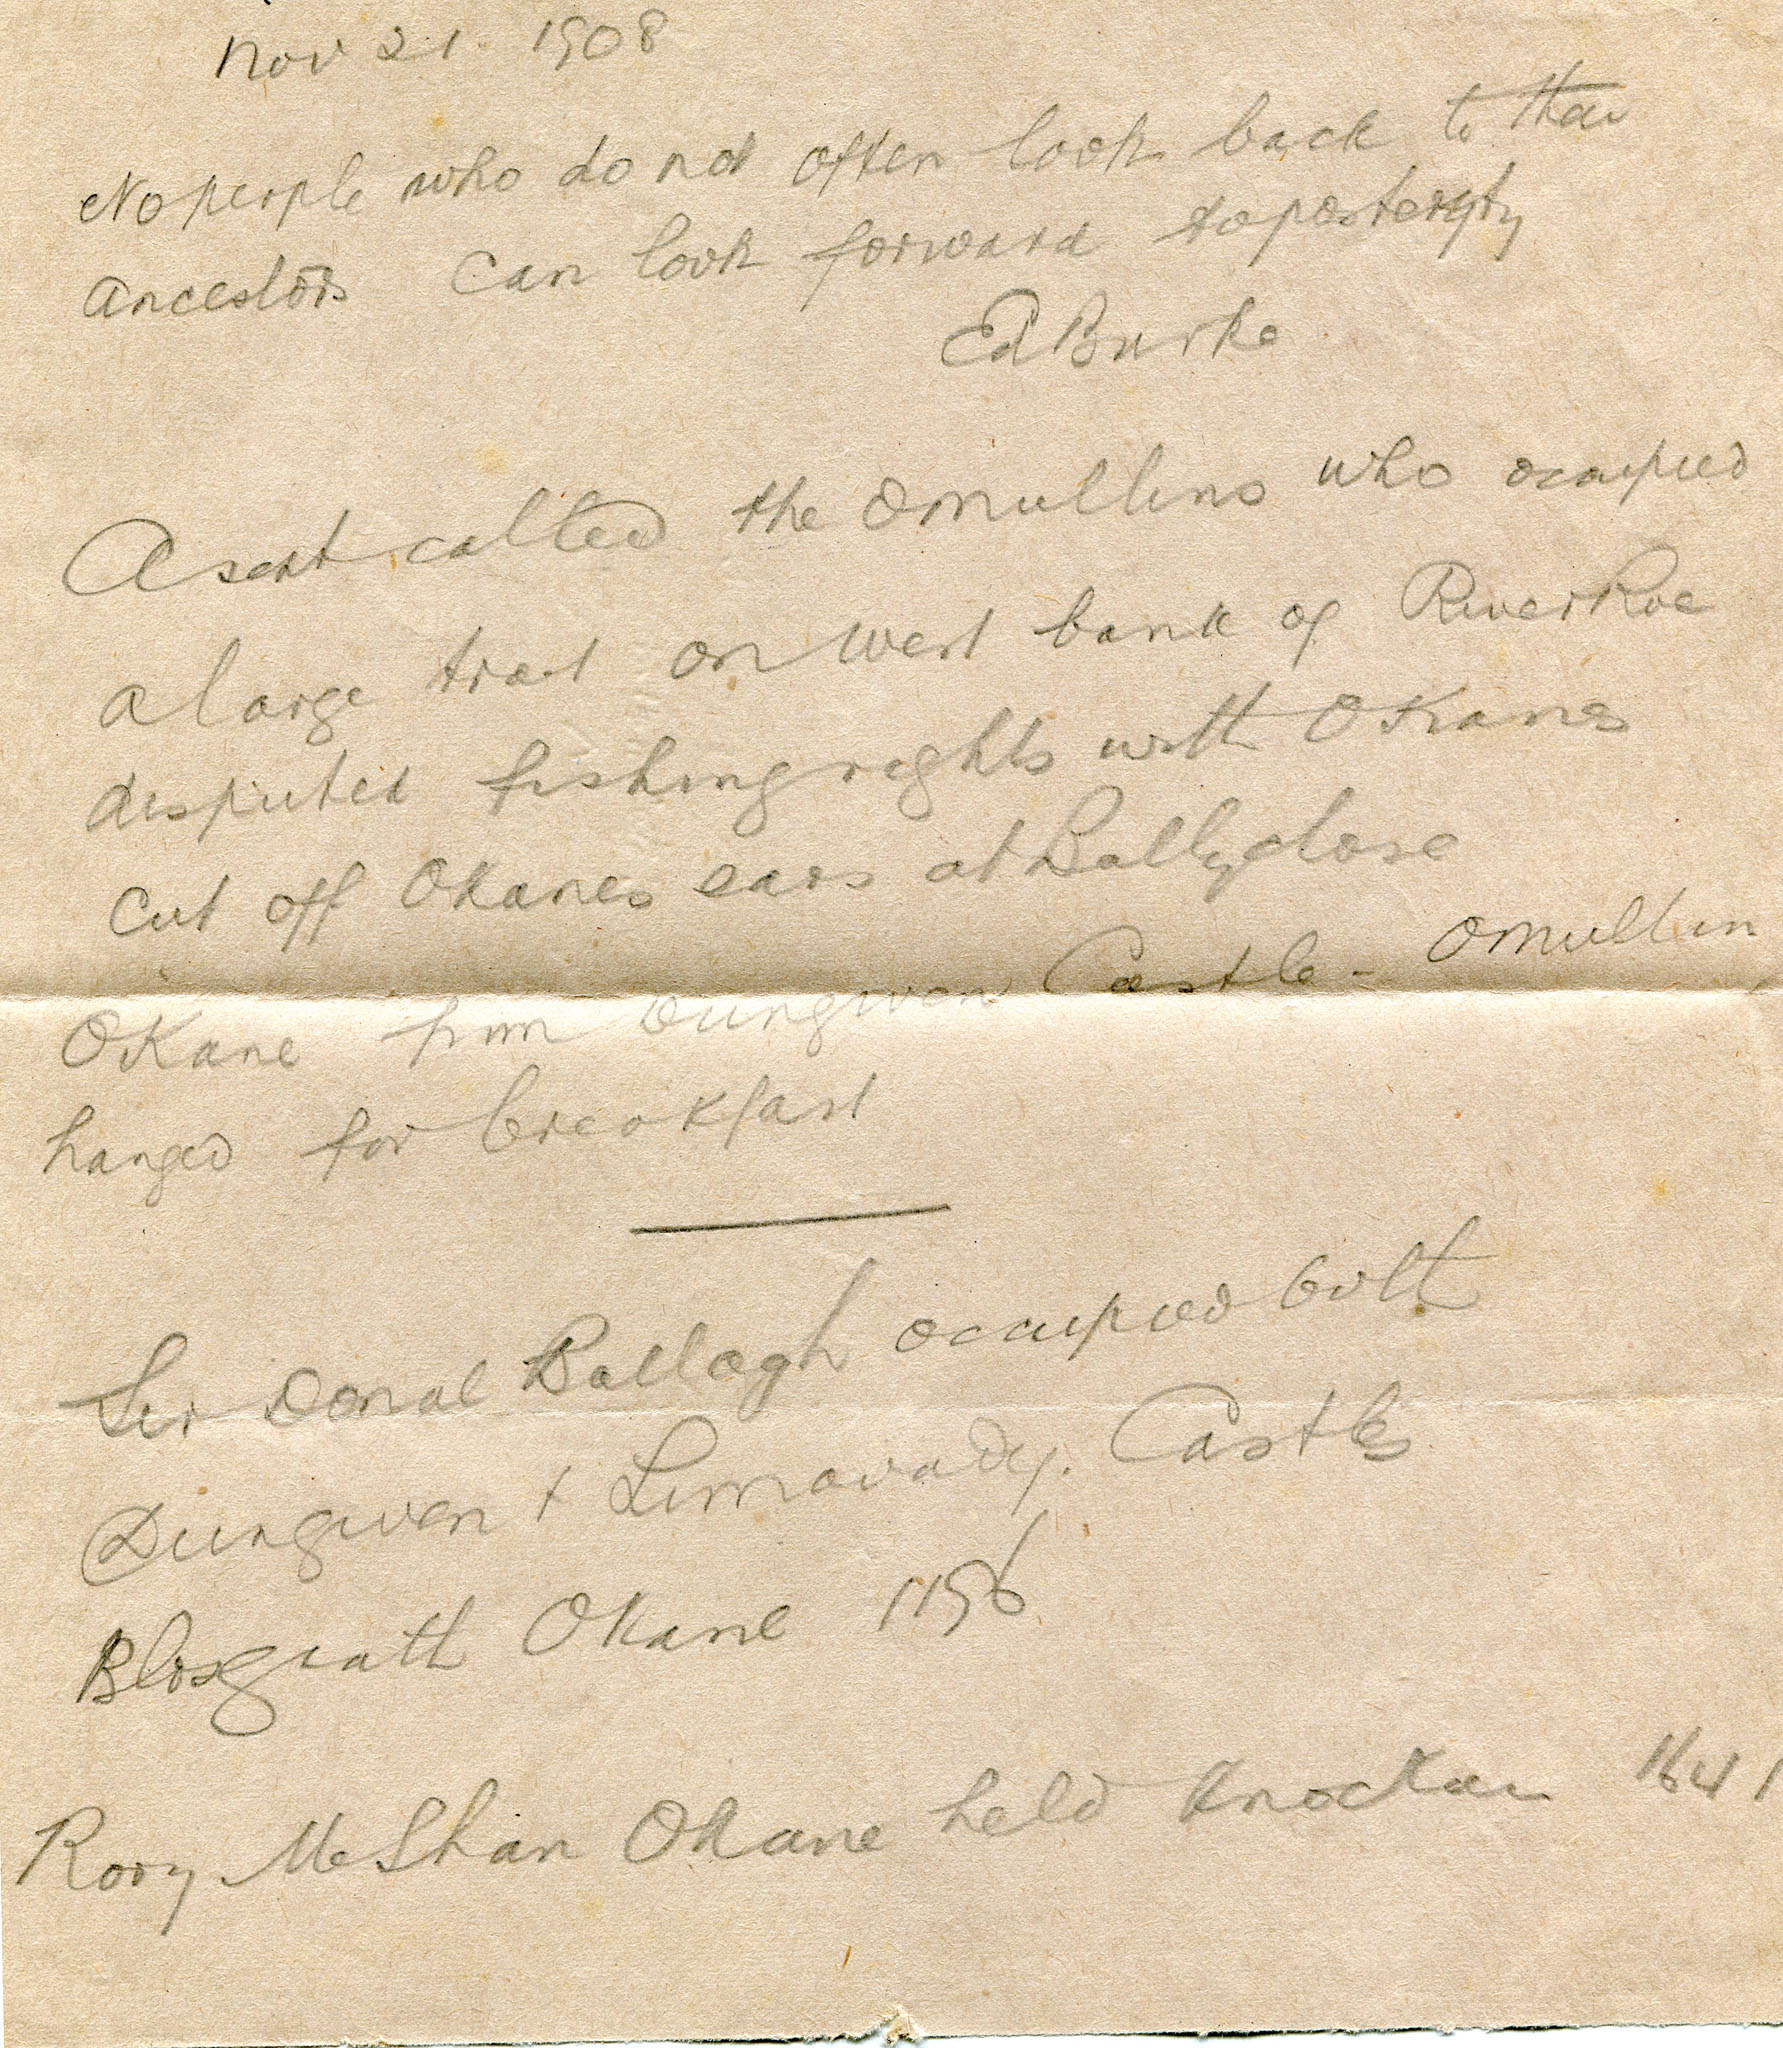 Nov 21. 1908
No people who do not often look back to their
ancestors can look forward to posterity
Ed Burke
A sept called the OMullins who occupied
a large tract on West bank of River Roe
disputed fishing rights with OKanes
Cut off OKanes ears at Ballyclose
OKane from Dungiven Castle - OMullin
hanged for breakfast
Sir Donal Ballagh occupied both
Dungiven + Limavady. Castles
OKane 1196
Rory McShan OKane held Knockan 1641